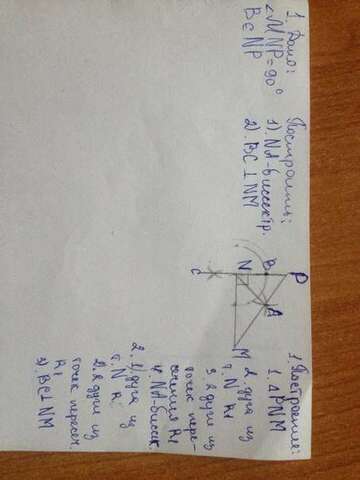 1. Дано:
∠MNP = 90°
B ∈ NP
Построить:
1) NA-биссектр.
2) BC ⊥ NM
P
B
N
C
A
M
1. Построение:
1. △PNM
2. дуга из
т. N R1
3. 2 дуги из
точек пере-
сечения R1
4. NA-биссек.
2. 1) дуга из
т. N R
2) 2 дуги из
точек пересеч.
R1
3) BC ⊥ NM